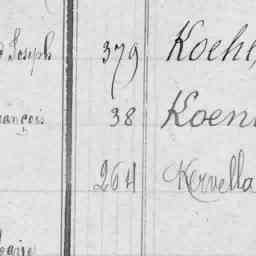 Joseph 379 Koeh
rançois 38 Koen
264 Kervella